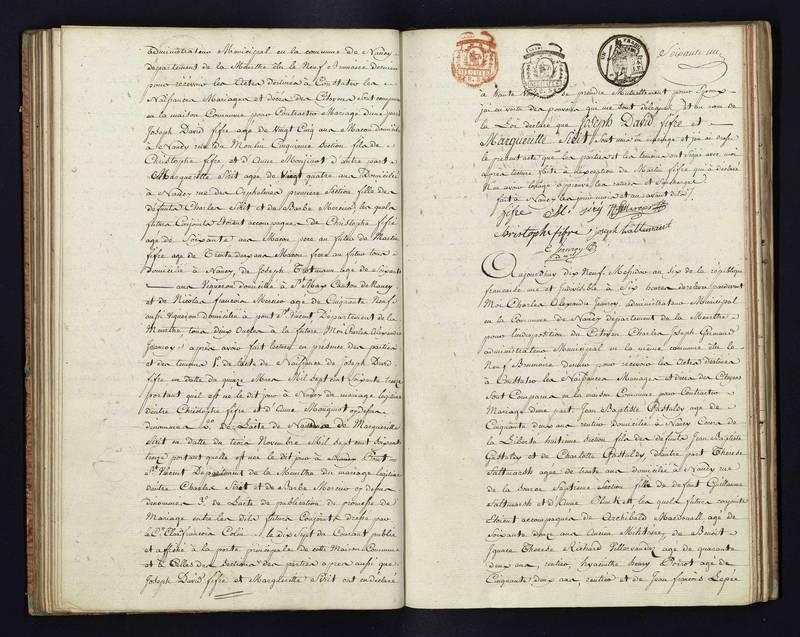 administrateur Municipal en la commune de Nancy
departement de la Meurthe élu le Neuf Brumaire dernier
pour recevoir les Actes destinés à Constater les
Naissances Mariages et décès des Citoyens sont comparus
en la maison Commune pour Contracter Mariage d'une part
Joseph David fifre age de Vingt Cinq ans Macon domicilié
à Nancy rue du Moulin Cinquieme Section fils de
Christophe fifre et d'Anne Monginot d'autre part
Margueritte agée de Vingt quatre ans Domiciliée
à Nancy rue des Orphelines premiere Section fille de
défunt Charles et de Barbe Mercier, les quels
futurs Conjoints étoient accompagnés de Christophe fifre
agé de Soixante ans Macon pere au futur de Martin
fifre age de Trente deux ans Macon frere au futur tous
domiciliés à Nancy, de Joseph age de Soixante
ans Vigneron domicilié à St Max Canton de Nancy
et de Nicolas francois Mercier age de Cinquante Neuf
aussi Vigneron domicilié à pont St Vincent Departement de la
Meurthe tous deux Oncles à la future Moi Charles Alexandre
Jeanroy après avoir fait lecture en presence des parties
et des temoins 1o. de l'acte de Naissance de Joseph David
fifre en datte du quinze Mars Mil Sept cent Soixante treize
portant quil est né le dit jour à Nancy de mariage legitime
d'entre Christophe fifre et d'Anne Monginot cy devant
denommés 2o. de L'acte de Naissance de Margueritte
en datte du trois Novembre Mil Sept cent Soixante
treize portant quelle est née le dit jour à Pont
St Vincent Departement de la Meurthe du mariage legitime
d'entre Charles et de Barbe Mercier cy devant
denommés 3o. de L'acte de publication de promesse de
Mariage entre les dits futurs Conjoints dressé par
le Cn. Jean francois Colin le dix Sept du Courant publié
et affiché à la porte principale de cette Maison Commune
et à Celles des Sections des parties après aussi que
Joseph David fifre et Margueritte ont eu déclaré
Soixante un
à haute Voix se prendre Mutuellement pour Epoux
j'ai en vertu des pouvoirs qui me sont délégués Et au nom de
la Loi declaré que Joseph David fifre et
Margueritte sont unis en mariage et j'ai dressé
le present acte que les parties et les temoins ont Signé avec moi
après lecture faite à l'exception de Martin fifre qui à declaré
n'en avoir l'usage
fait à Nancy les jour mois et an avant dits
fifre
Christophe fifre joseph
Jeanroy
Aujourdhuy dix Neuf Messidor an Six de la république
francaise une et Indivisible à Six heures de relevée pardevant
Moi Charles Alexandre Jeanroy, administrateur Municipal
en la Commune de Nancy département de la Meurthe
pour l'indisposition du Citoyen Charles Joseph
administrateur Municipal en la même commune élu le
Neuf Brumaire dernier pour recevoir les Actes destinés
à Constater les Naissances Mariages et décès des Citoyens
Sont Comparus en la maison Commune pour Contracter
Mariage d'une part Jean Baptiste Castaldy age de
Cinquante deux ans rentier domicilié à Nancy Cours de
la Liberté huitieme Section fils des defunts Jean Baptiste
Castaldy et de Charlotte Castaldy d'autre part Therese
Saltmarsh agée de trente ans domiciliée à Nancy rue
de la Source Septieme Section fille de defunt Guillaume
Saltmarsh et d'Anne les quels futurs conjoints
Etoient accompagnés de Archibald Macdonald agé de
Soixante douze ans Ancien Militaire, de Benoit
Ignace Therese Richard age de quarante
deux ans, rentier, hyacinthe henry Poirot agé de
Cinquante deux ans, rentier et de Jean francois Lepée